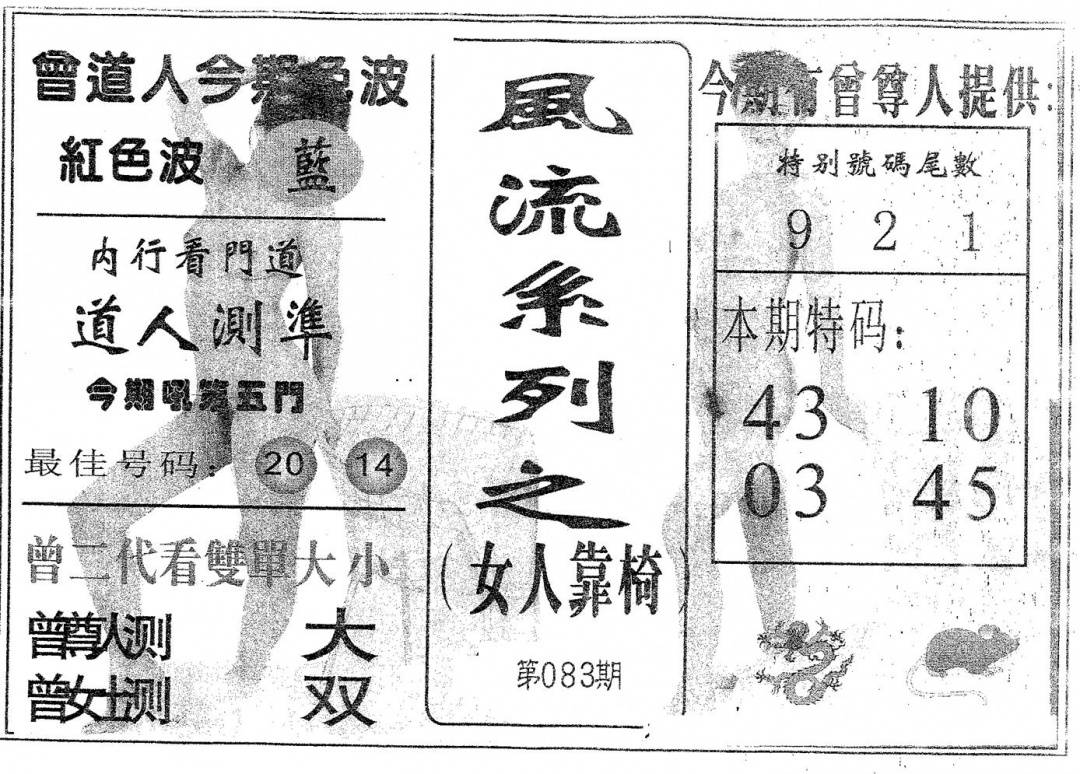 曾道人今期色波
紅色波 藍
内行看門道
道人測準
今期吼第五門
最佳号码: 20 14
曾二代看雙單大小
曾尊人测 大
曾女士测 双
風流系列之
(女人靠椅)
第083期
今期有曾尊人提供:
特别號碼尾數
9 2 1
本期特码:
43 10
03 45